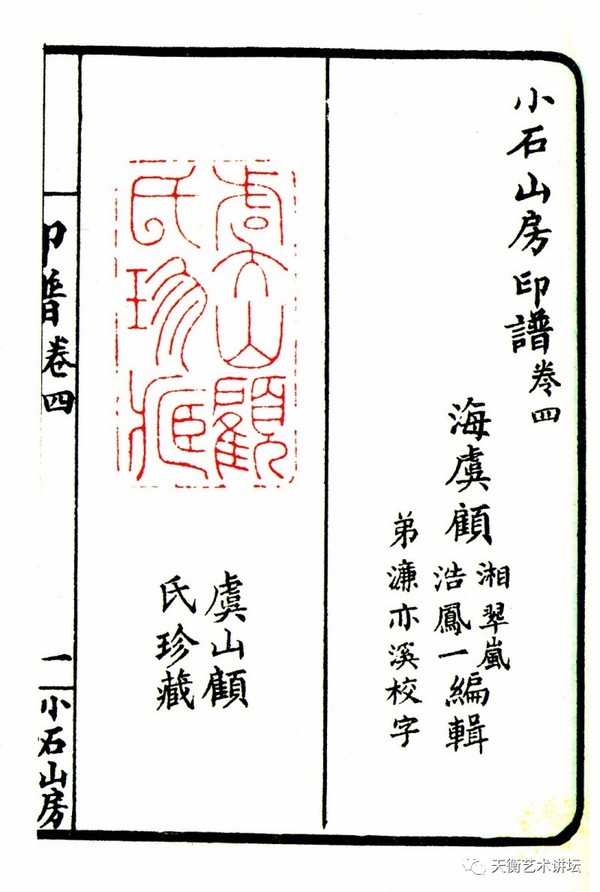 小石山房印譜卷四
海虞顧湘翠嵐
浩鳳一編輯
弟濂亦溪校字
虞山顧
氏珍臧
虞山顧
氏珍藏
印譜卷四
一
小石山房
天衡艺术讲坛